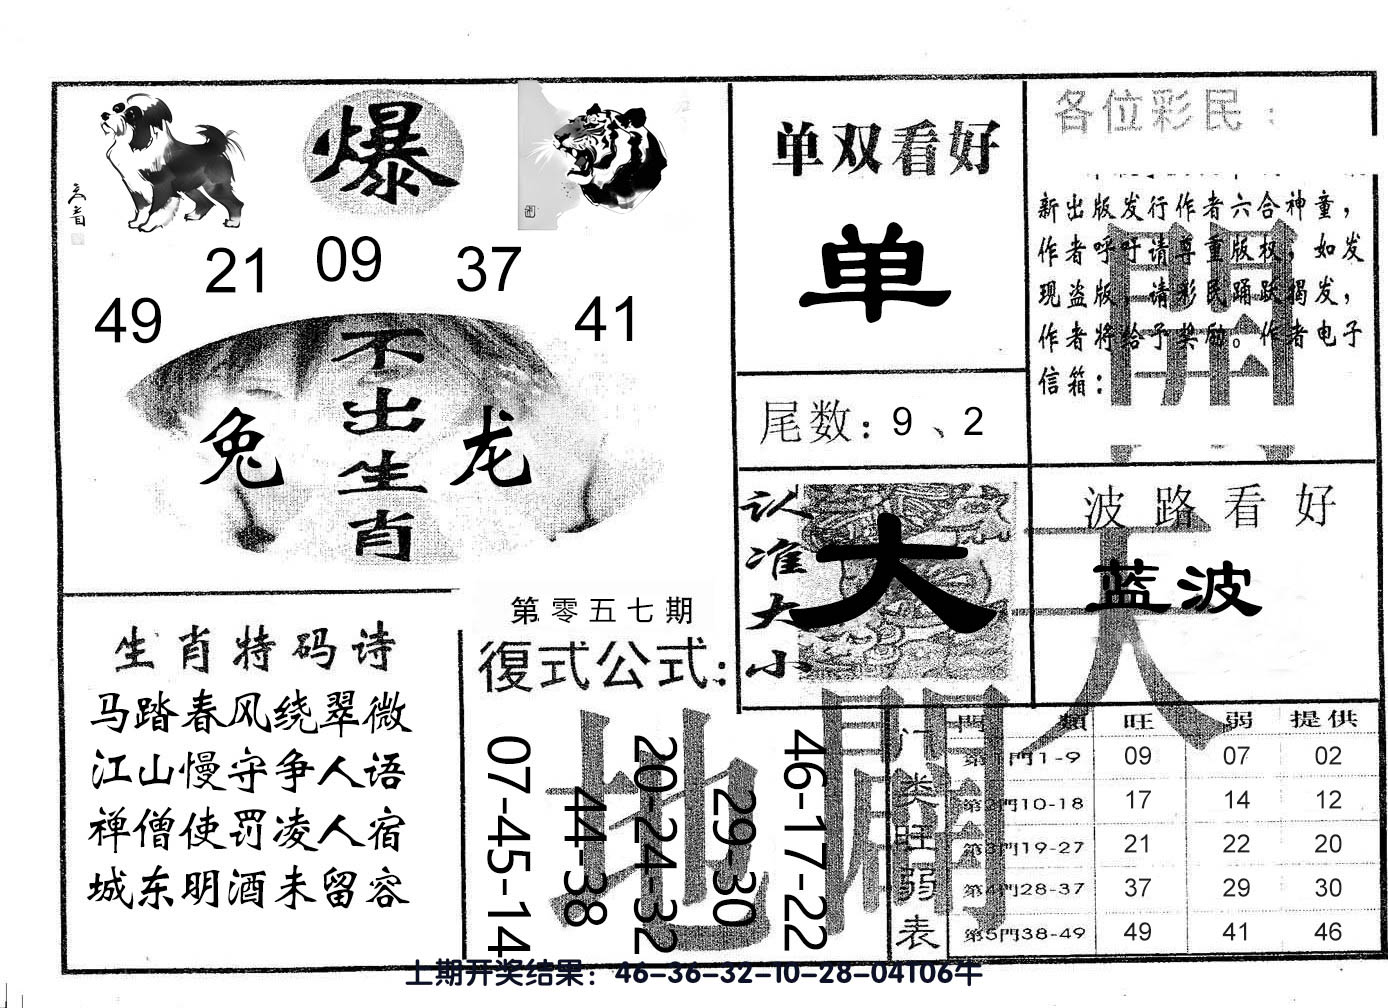 爆
21 09 37
49 41
不出生肖
兔 龙
单双看好
单
尾数：9、2
认准大小
大
各位彩民：
新出版发行作者六合神童，
作者呼吁请尊重版权，如发
现盗版，请彩民踊跃揭发，
作者将给予奖励。作者电子
信箱：
波路看好
蓝波
生肖特码诗
马踏春风绕翠微
江山慢守争人语
禅僧使罚凌人宿
城东明酒未留客
第零五七期
復式公式：
07-45-14
44-38
20-24-32
29-30
46-17-22
天
地
門類 旺 弱 提供
门类旺弱表
第1門1-9 09 07 02
第2門10-18 17 14 12
第3門19-27 21 22 20
第4門28-37 37 29 30
第5門38-49 49 41 46
上期开奖结果：46-36-32-10-28-04T06牛